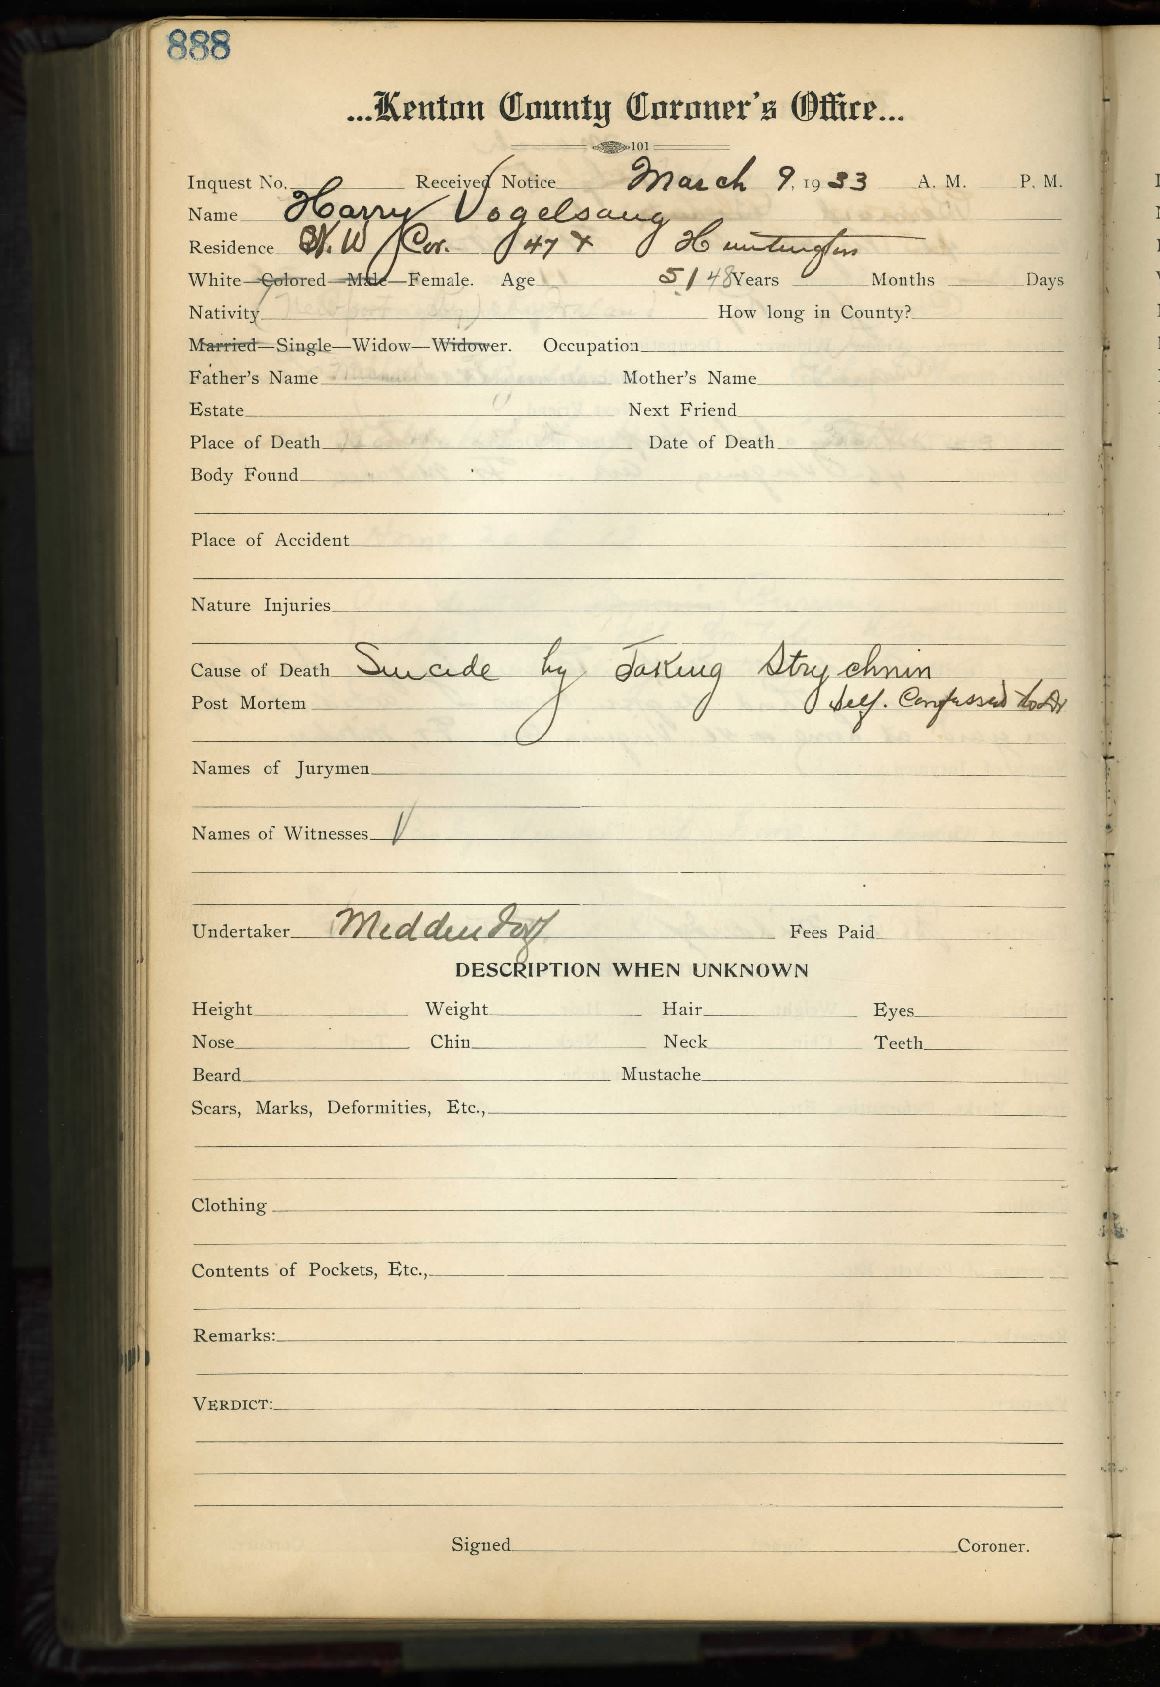 888
...Kenton County Coroner's Office...
101
Inquest No. Received Notice March 9, 1933 A. M. P. M.
Name Harry Vogelsang
Residence N. W. Cor. 47 & Huntington
White—Colored—Male—Female. Age 51 48 Years Months Days
Nativity (Newport Ky) How long in County?
Married—Single—Widow—Widower. Occupation
Father's Name Mother's Name
Estate Next Friend
Place of Death Date of Death
Body Found
Place of Accident
Nature Injuries
Cause of Death Suicide by Taking Strychnin
Post Mortem Self. Confessed to Dr
Names of Jurymen
Names of Witnesses
Undertaker Meddendorf Fees Paid
DESCRIPTION WHEN UNKNOWN
Height Weight Hair Eyes
Nose Chin Neck Teeth
Beard Mustache
Scars, Marks, Deformities, Etc.,
Clothing
Contents of Pockets, Etc.,
Remarks:
VERDICT:
Signed Coroner.